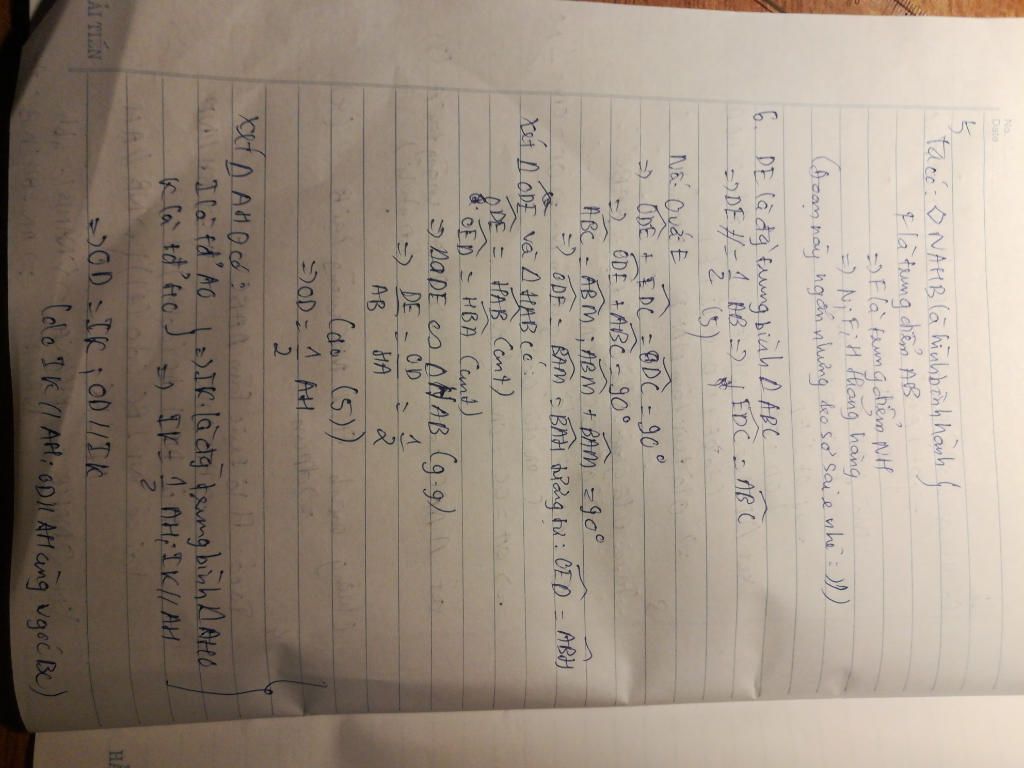 No.
Date
5
Ta có: ◇ NAHB là hình bình hành }
F là trung điểm AB
=> F là trung điểm NH
=> N; F; H thẳng hàng
(đoạn này ngắn nhưng dễ sơ sai e nhé =)))
6. DE là đg trung bình Δ ABC
=> DE // = 1/2 AB => EDC = ABC
(5)
=> ODE + EDC = ODC = 90°
=> ODE + ABC = 90°
ABC = ABM; ABM + BAM = 90°
=> ODE = BAM = BAH tương tự: OED = ABH
Xét Δ ODE và Δ HAB có:
ODE = HAB (cmt)
OED = HBA (cmt)
=> Δ ODE ∽ Δ HAB (g-g)
=> DE/AB = OD/HA = 1/2
(do (5))
=> OD = 1/2 AH
Xét Δ AHO có:
I là tđ' AO } => IK là đg trung bình Δ AHO
K là tđ' HO } => IK = 1/2 AH; IK // AH
=> OD = IK; OD // IK
(do IK // AH; OD // AH cùng v góc BC)
ẢI TIẾN